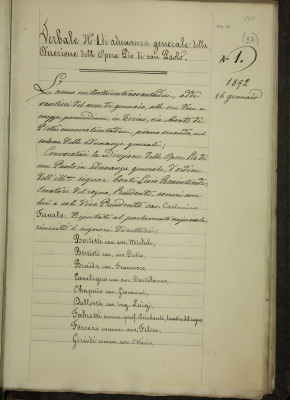 Verbale N° 1 di adunanza generale della
Direzione delle Opere Pie di san Paolo.
N° 1.
1892
26 gennaio
L'anno milleottocentonovantadue, addì
ventisei del mese di gennaio, alle ore due e
mezzo pomeridiane, in Torino, via Monte di
Pietà numero trentadue, piano secondo, nel
salone delle adunanze generali;
Convocatasi la Direzione delle Opere Pie di
san Paolo in adunanza generale, d'ordine
dell'ill.mo signor Conte Luigi
senatore del regno, Presidente, sonosi con
lui e col Vice Presidente cav. Casimiro
Favale, Deputato al parlamento nazionale
riuniti i signori Direttori;
Bertetti cav. avv. Michele,
Bertetti cav. avv. Pietro,
Braida cav. Francesco,
cav. Bartolomeo,
Chapuis cav. Giovanni,
cav. ing. Luigi,
Fabretti comm. prof. Ariodante, senatore del regno
Ferrero comm. avv. Felice,
comm. avv. Ottavio,